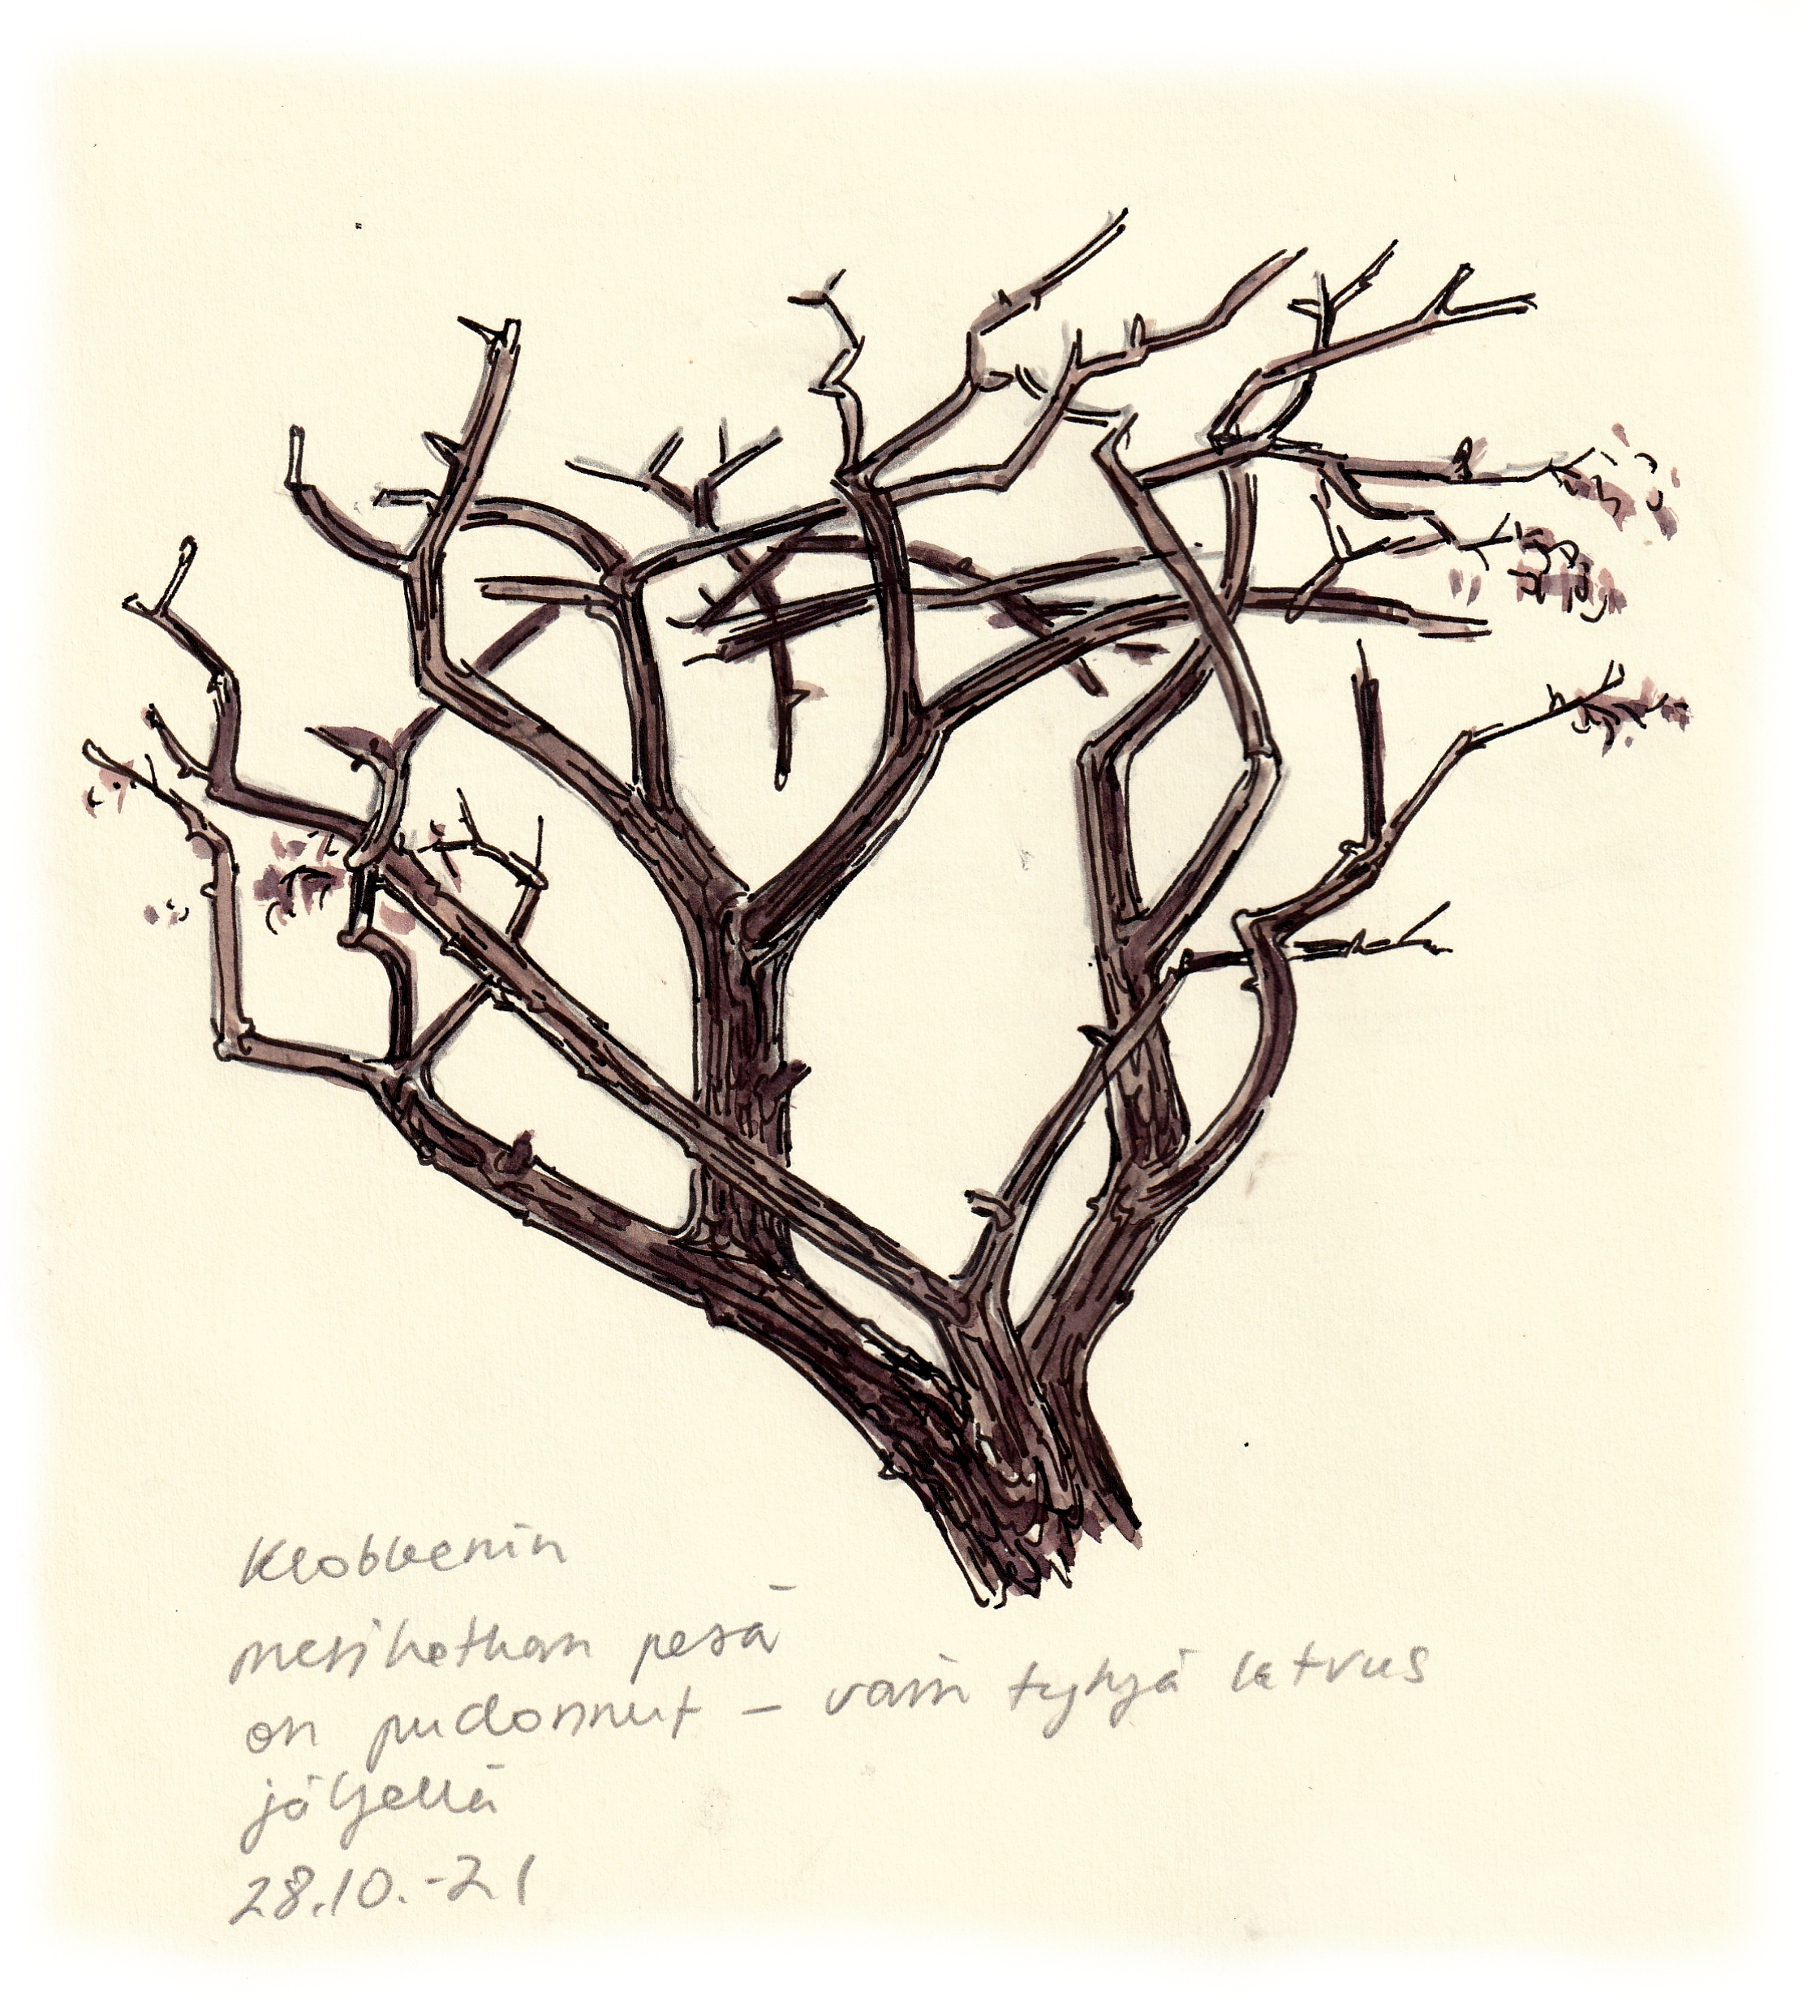 Klobbenin
merikotkan pesä
on pudonnut – vain tyhjä latvus
jäljellä
28.10.-21